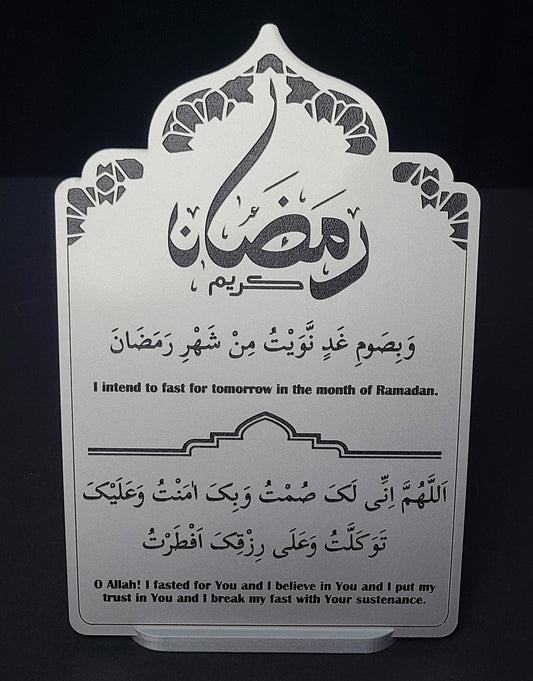 رمضان
كريم
وَبِصَومِ غَدٍ نَّوَيْتُ مِنْ شَهْرِ رَمَضَانَ
I intend to fast for tomorrow in the month of Ramadan.
اَللَّهُمَّ اِنِّی لَکَ صُمْتُ وَبِکَ اٰمَنْتُ وَعَلَيْکَ
تَوَکَلَّتُ وَعَلَی رِزْقِکَ اَفْطَرْتُ
O Allah! I fasted for You and I believe in You and I put my
trust in You and I break my fast with Your sustenance.